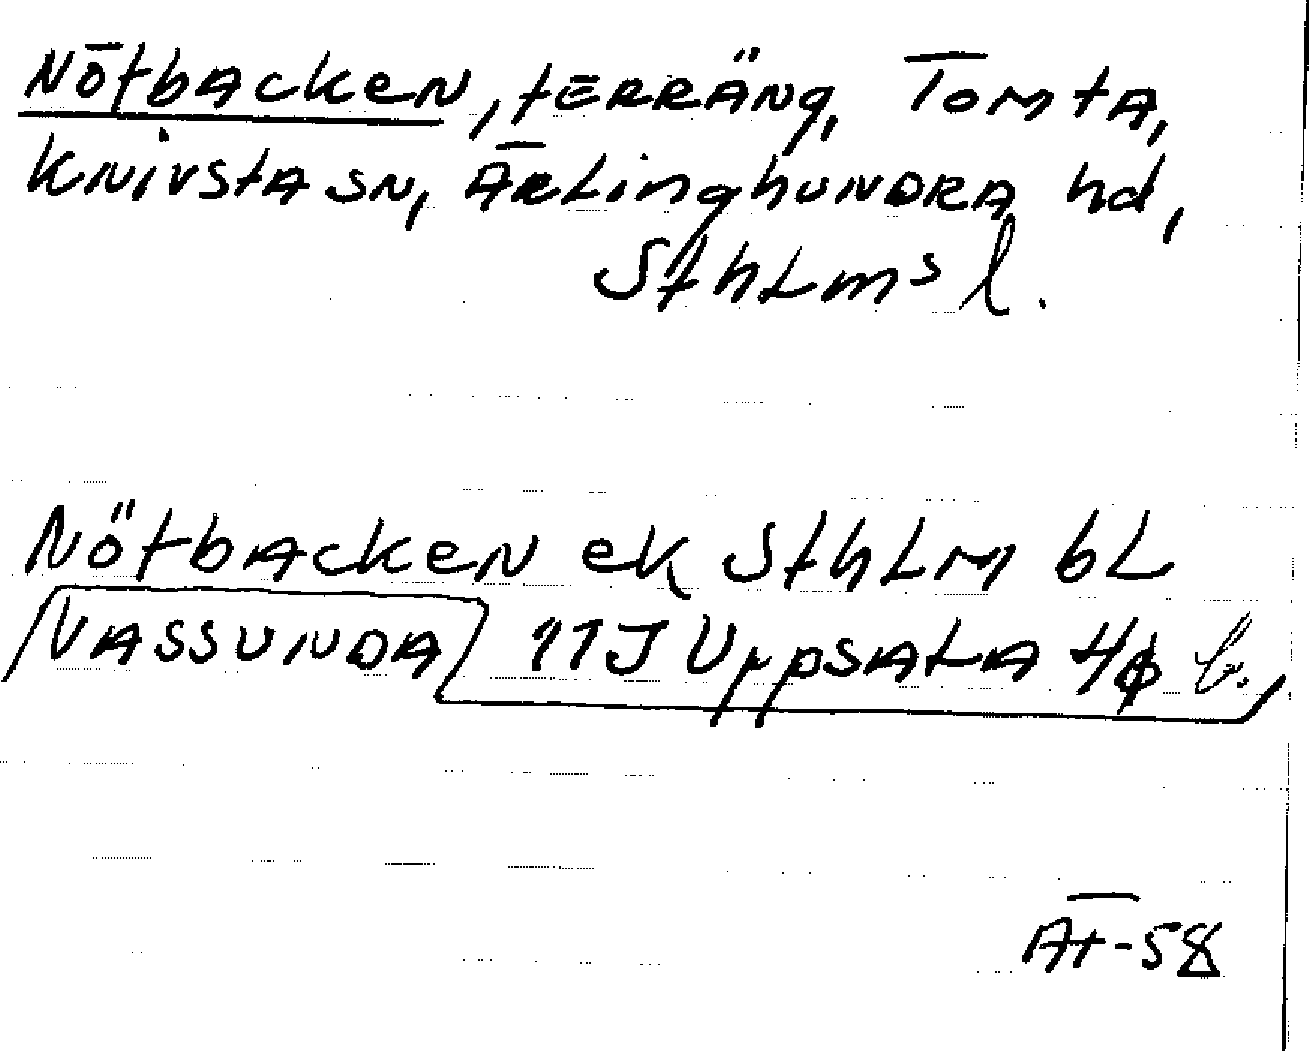 Nötbacken, terräng, Tomta,
Knivsta sn, Ärlinghundra hd,
Sthlms l.
Nötbacken ek Sthlm bl
Vassunda 11J Uppsala
Ät-58